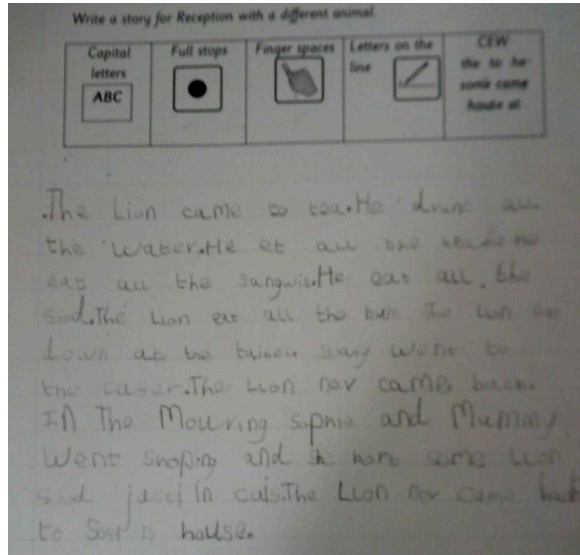 Write a story for Reception with a different animal.
Capital letters
ABC
Full stops
Finger spaces
Letters on the line
CEW
the to he
some came
house at
.The Lion came to tea.He drunc all
the water.He et all the
eat all the sangwic.He eat all the
The Lion eat all the The Lion
down at the went to
the The Lion nev came back.
In The Mourning Sophie and Mummy
Went Shoping and some Lion
in cais.The Lion nev came back
to is house.